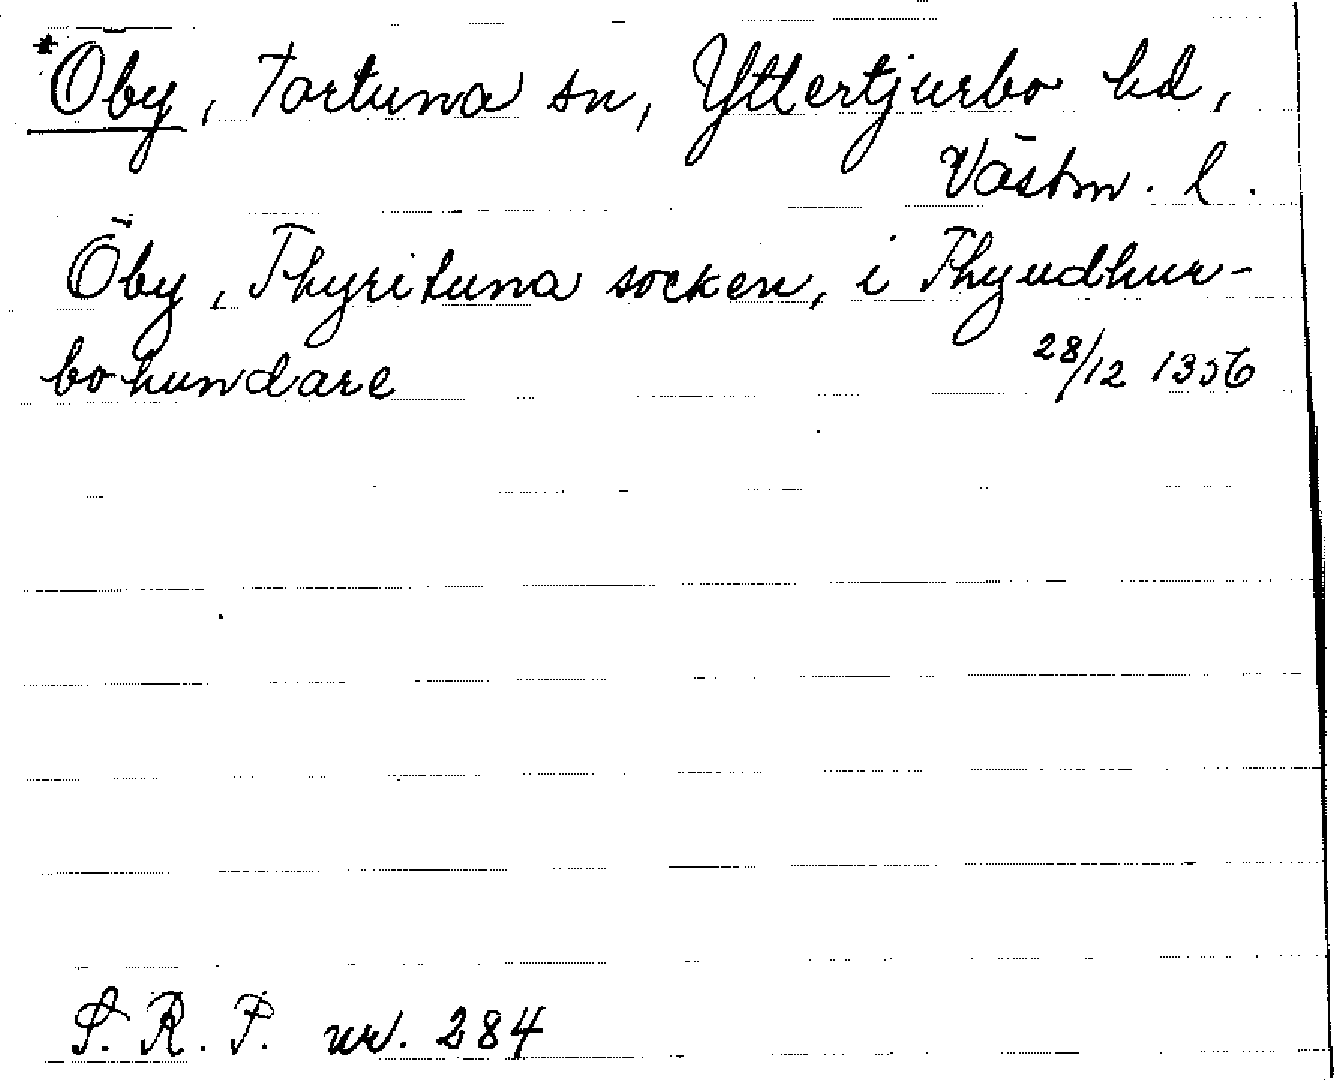 *Öby, Tortuna sn, Yttertjurbo hd,
Västm. l.
Öby, Thyrituna socken, i Thyudhur-
bo hundare 28/12 1356
S. R. P. nr. 284